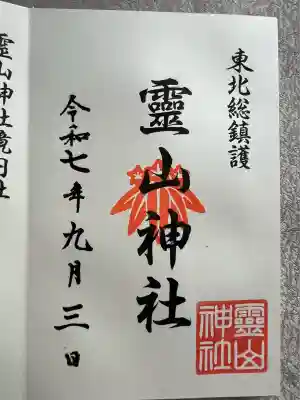 東北総鎮護
靈山神社
令和七年九月三日
靈山
神社
靈山神社